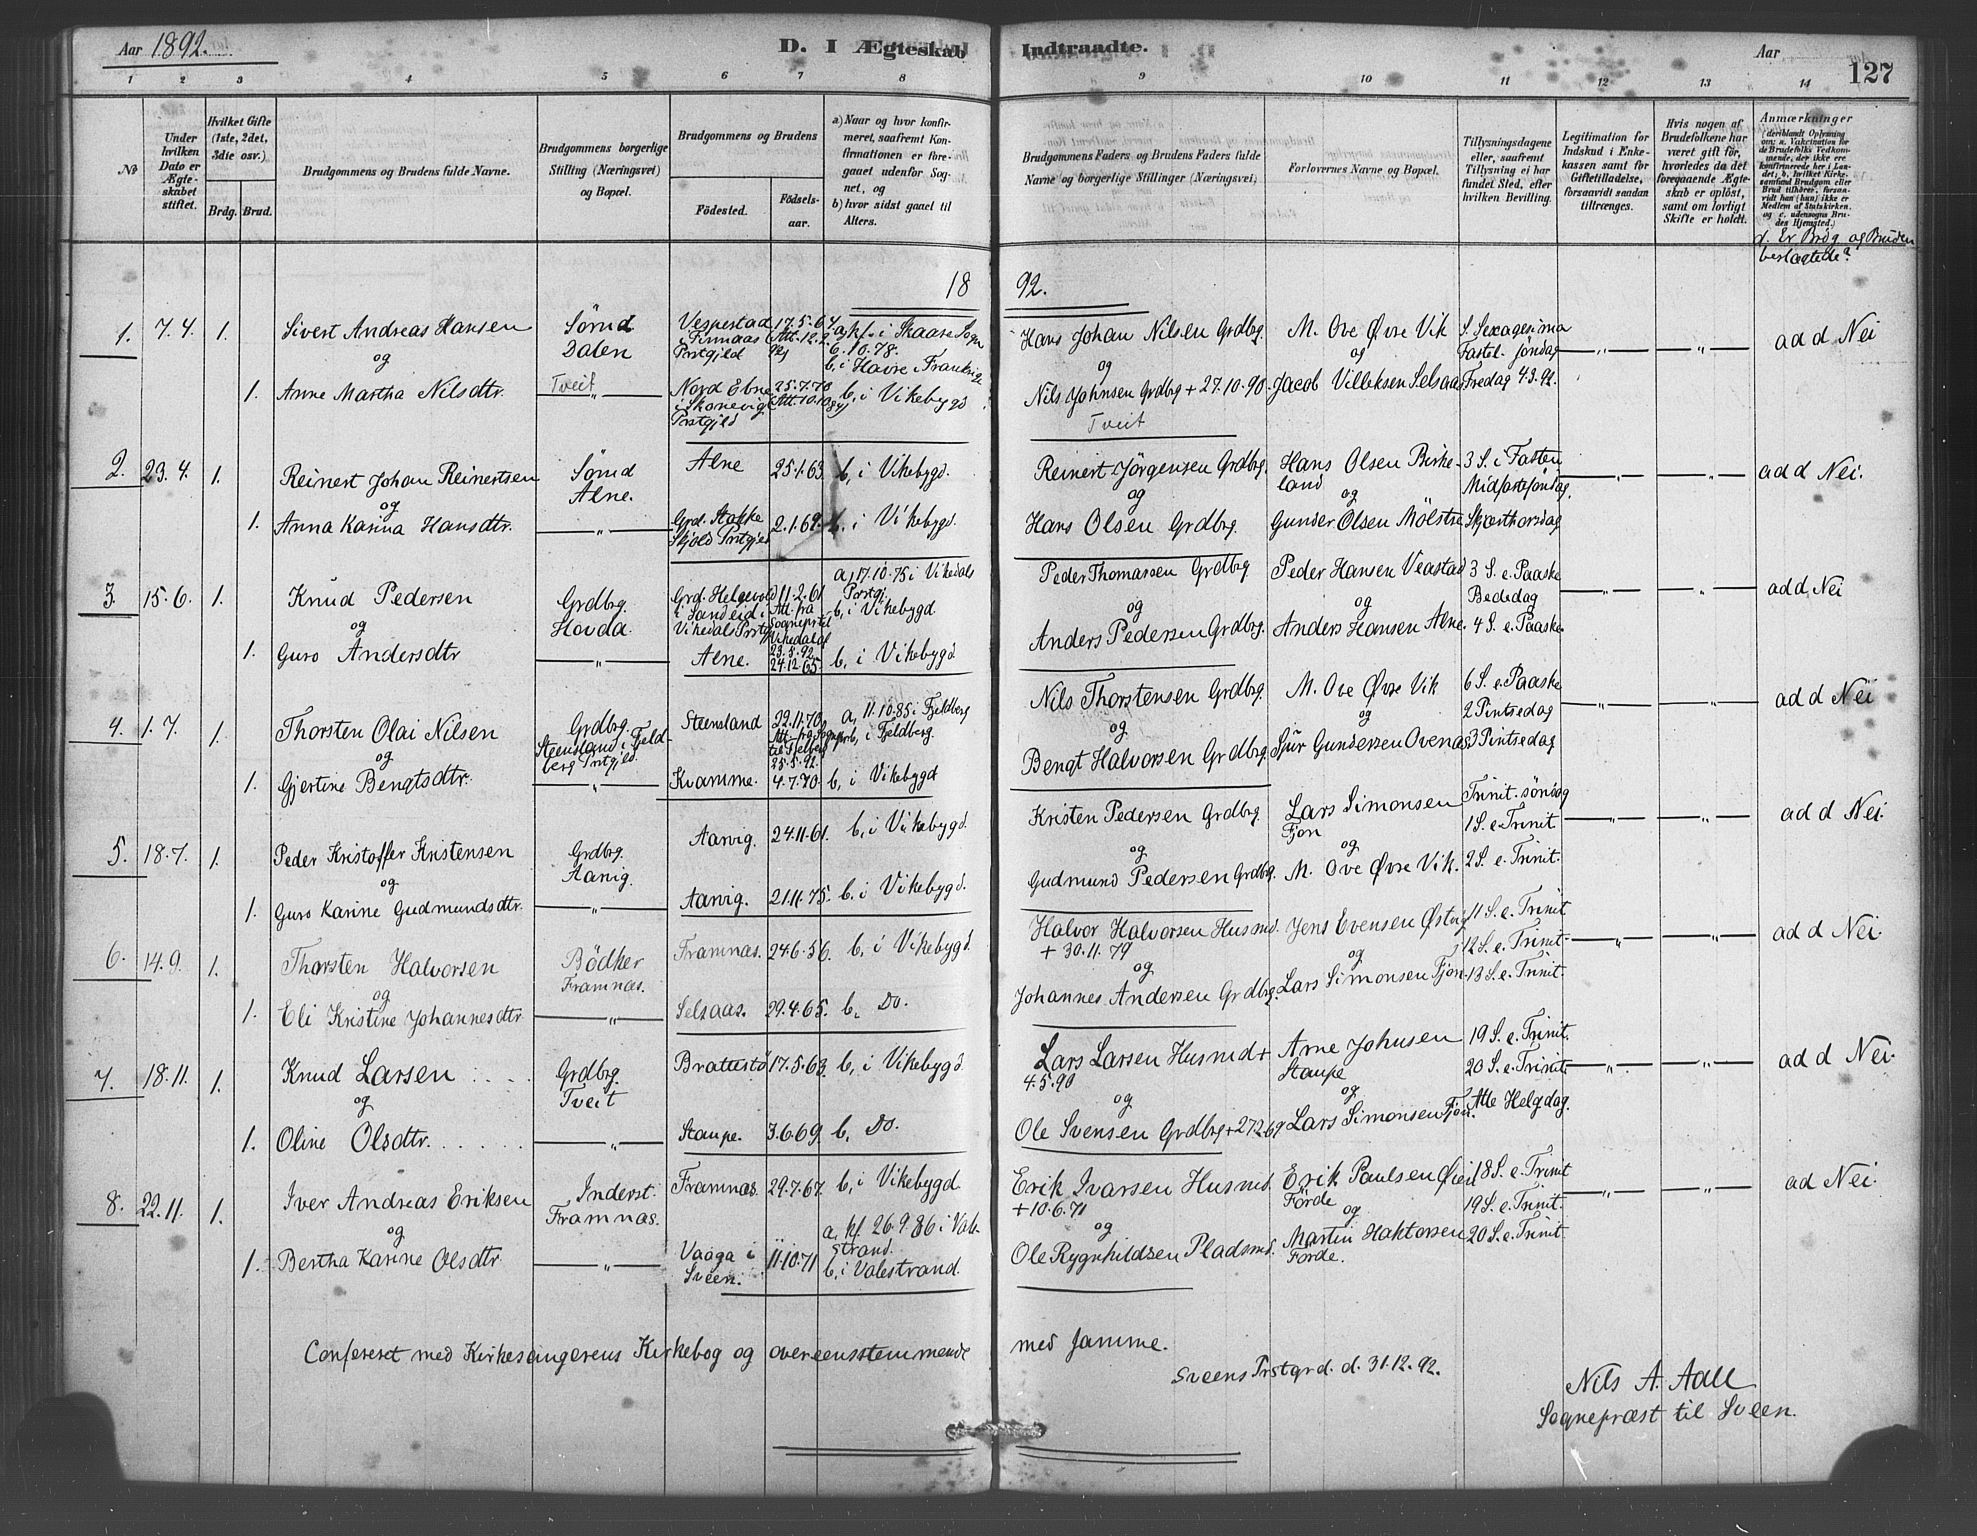 Aar 1892.
D. I Ægteskab Indtraadte.
Aar
127
1 2 3 4 5 6 7 8 9 10 11 12 13 14
No
Under hvilken Dato er Ægteskabet stiftet.
Hvilket Gifte (1ste, 2det, 3die osv.)
Brdg. Brud.
Brudgommens og Brudens fulde Navne.
Brudgommens borgerlige Stilling (Næringsvei) og Bopæl.
Brudgommens og Brudens
Fødested.
Fødselsaar.
a) Naar og hvor konfirmeret, saafremt Konfirmationen er foregaaet udenfor Sognet, og
b) hvor sidst gaaet til Alters.
Brudgommens Faders og Brudens Faders fulde Navne og borgerlige Stillinger (Næringsvei)
Forlovernes Navne og Bopæl.
Tillysningsdagene eller, saafremt Tillysning ei har fundet Sted, efter hvilken Bevilling.
Legitimation for Indskud i Enkekassen samt for Giftetilladelse, forsaavidt saadan tiltrænges.
Hvis nogen af Brudefolkene har været gift før, hvorledes da det foregaaende Ægteskab er opløst, samt om lovligt Skifte er holdt.
Anmærkninger
(deriblandt Oplysning om: a. Vakcination for de Brudefolks Vedkommende, der ikke ere konfirmerede her i Landet; b. hvilket Kirkesamfund Brudgom eller Brud tilhører, forsaavidt han (hun) ikke er Medlem af Statskirken, og c. udensogns Brudes Hjemsted.)
d. Er Brdg. og Bruden beslægtede?
18 92.
1. 7.4. 1. Sivert Andreas Hansen Sömd Dalen Vespestad i Finnaas Prstgjld 17.5.64 a, kf. i Skaare Sogn 6.10.78. b, i Havre i Frankrige Hans Johan Nilsen Grdbrg. M. Ove Øvre Vik S. Sexagesima Fastel. söndag — „ — — „ — ad d Nei
og og og
1. Anne Martha Nilsdtr. Tveit — „ — Nord Ebne i Skonevig Prstgjeld 25.7.70 b, i Vikebygd Nils Johnsen Grdbrg + 27.10.90. Tveit Jacob Villeksen Selsaas Fredag 4.3.92.
2. 23.4. 1. Reinert Johan Reinertsen Sömd Alne. Alne 25.1.63 b, i Vikebygd. Reinert Jörgensen Grdbrg. Hans Olsen Birkeland 3 S. i Fasten Midfastesöndag. — „ — — „ — ad d Nei.
og og og
1. Anna Karina Hansdtr. — „ — Grd. Stakke Skjold Prstgjeld 2.1.69. b, i Vikebygd. Hans Olsen Grdbrg. Gunder Olsen Mölstre Skjærthorsdag
3. 15.6. 1. Knud Pedersen Grdbrg. Hovda. Grd. Helgevold i Sandeid i Vikedals Prstgj. 11.2.61 Att. fra Sogneprst til Vikedal 23.5.92. a, 17.10.75 i Vikedals Prstgj. b, i Vikebygd. Peder Thomassen Grdbrg. Peder Hansen Veastad 3 S. e. Paaske Bededag — „ — — „ — ad d Nei
og og og
1. Guro Andersdtr — „ — Alne. 24.12.65 b, i Vikebygd Anders Pedersen Grdbrg. Anders Hansen Alne. 4 S. e. Paaske.
4. 1.7. 1. Thorsten Olai Nilsen Grdbrg. Steensland i Fjeldberg Prstgjld. Steensland 22.11.70 a, 11.10.85 i Fjeldberg b, i Fjeldberg. Nils Thorstensen Grdbrg. M. Ove Øvre Vik 6 S. e. Paaske 2 Pintsedag — „ — — „ — ad d Nei
og og og
1. Gjertine Bengtsdtr. — „ — Kvamme. 4.7.70. b, i Vikebygd Bengt Halvorsen Grdbrg. Sjur Gundersen Ovenaas 3 Pintsedag
5. 18.7. 1. Peder Kristoffer Kristensen Grdbrg. Aarvig. Aarvig. 24.11.61. b, i Vikebygd. Kristen Pedersen Grdbrg. Lars Simonsen Fjon Trinit. söndag 1 S. e. Trinit — „ — — „ — ad d Nei.
og og og
1. Guro Karine Gudmundsdtr. — „ — Aarvig. 21.11.75. b. i Vikebygd. Gudmund Pedersen Grdbrg. M. Ove Øvre Vik. 2 S. e. Trinit.
6. 14.9. 1. Thorsten Halvorsen Bödker Framnæs. Framnæs. 24.6.56. b, i Vikebygd. Halvor Halvorsen Husmd. + 30.11.79 Jens Evensen Østvig 11 S. e. Trinit 12 S. e. Trinit. — „ — — „ — ad d Nei.
og og og
1. Eli Kristine Johannesdtr. — „ — Selsaas. 29.4.65. b, Do. Johannes Andersen Grdbrg. Lars Simonsen Fjon. 13 S. e. Trinit.
7. 18.11. 1. Knud Larsen Grdbrg. Tveit Brattestö 17.5.63. b, i Vikebygd. Lars Larsen Husmd + 4.5.90 Arne Johnsen Staupe 19 S. e. Trinit. 20 S. e. Trinit. — „ — — „ — ad d Nei.
og og og
1. Oline Olsdtr. — „ — Staupe. 3.6.69. b, Do. Ole Svensen Grdbrg + 27.2.69 Lars Simonsen Fjon. Alle Helgdag.
8. 22.11. 1. Iver Andreas Eriksen Inderst. Framnæs. Framnæs. 29.7.67. b, i Vikebygd. Erik Ivarsen Husmd. + 10.6.71 Erik Paulsen Förde 18 S. e. Trinit 19 S. e. Trinit. — „ — — „ — ad Nei.
og og og
1. Bertha Karine Olsdtr — „ — Vaaga i Sveen. 11.10.71 a, kf. 26.9.86 i Valestrand. b, i Valestrand. Ole Rygnhildsen Pladsmd. Martin Haktorsen Förde. 20 S. e. Trinit.
Confereret med Kirkesangerens Kirkebog og overeensstemmende med samme.
Sveens Prstgrd. d. 31.12.92.
Nils A. Aall
Sognepræst til Sveen.